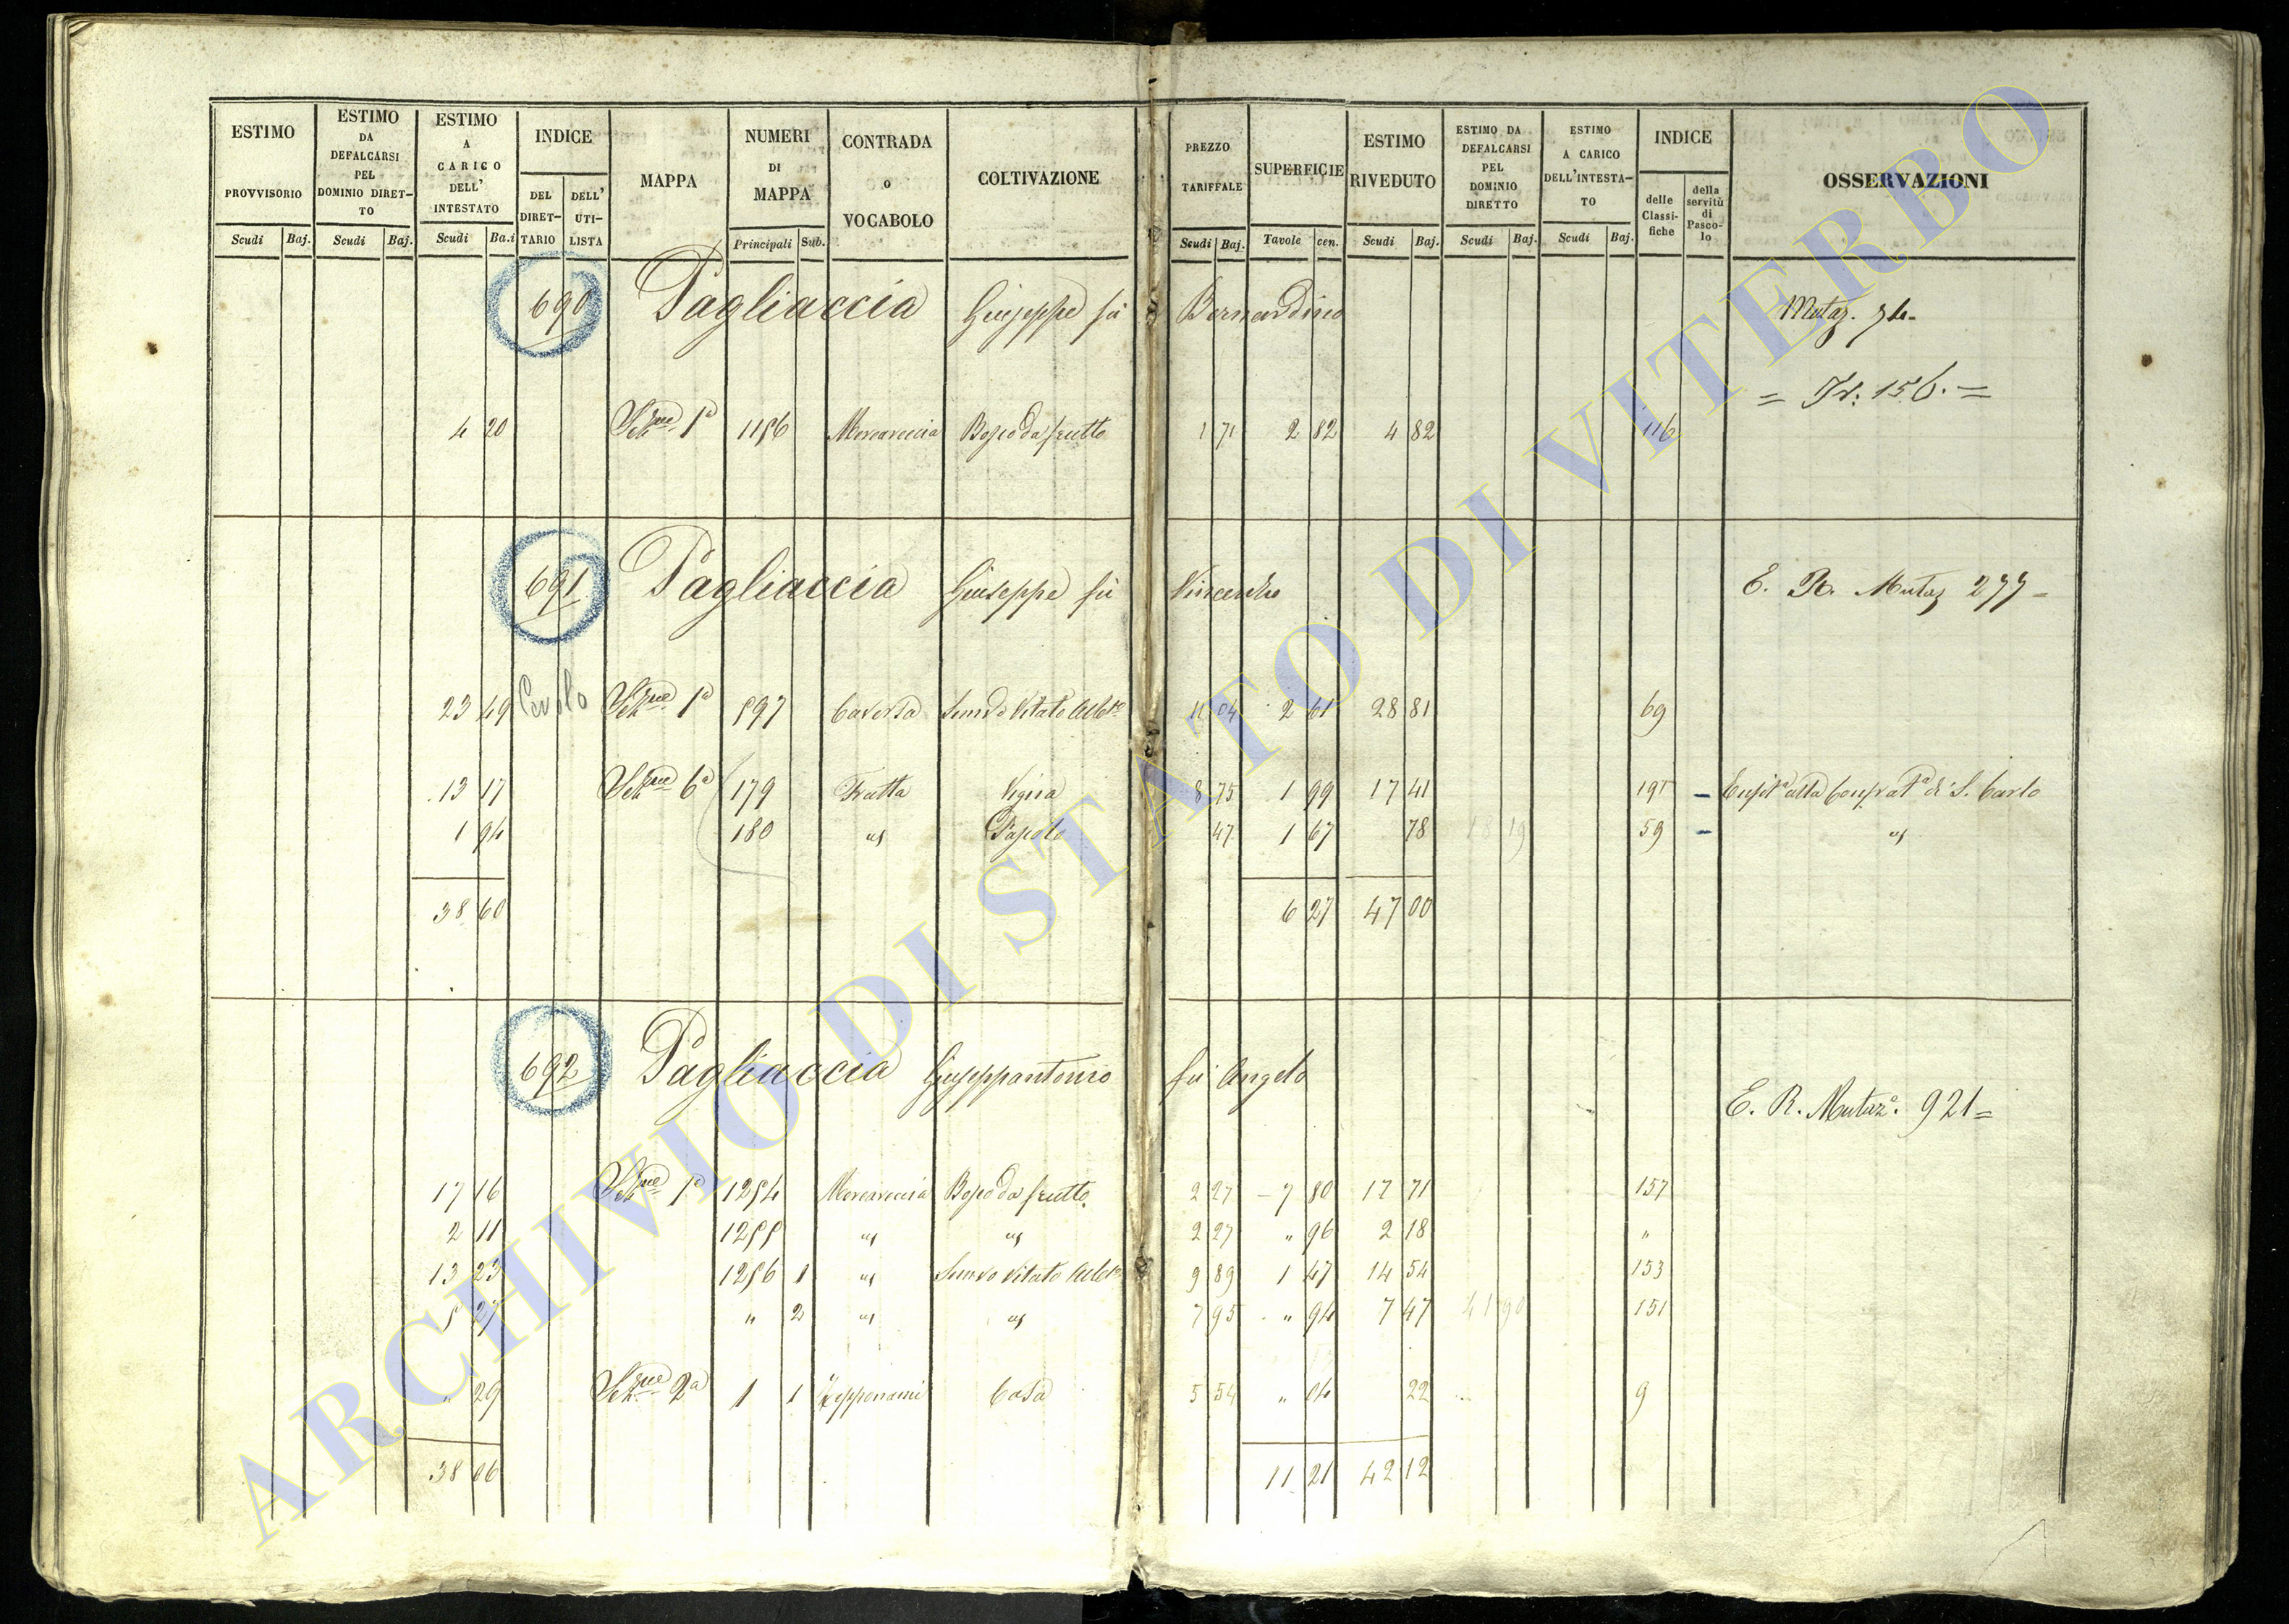 ESTIMO PROVVISORIO Scudi Baj.
ESTIMO DA DEFALCARSI PEL DOMINIO DIRET-TO Scudi Baj.
ESTIMO A CARICO DELL' INTESTATO Scudi Ba.i
INDICE DEL DIRET-TARIO DELL' UTI-LISTA
MAPPA
NUMERI DI MAPPA Principali Sub.
CONTRADA O VOCABOLO
COLTIVAZIONE
PREZZO TARIFFALE Scudi Baj.
SUPERFICIE Tavole cen.
ESTIMO RIVEDUTO Scudi Baj.
ESTIMO DA DEFALCARSI PEL DOMINIO DIRETTO Scudi Baj.
ESTIMO A CARICO DELL'INTESTA-TO Scudi Baj.
INDICE delle Classi-fiche della servitù di Pasco-lo
OSSERVAZIONI
690 Pagliaccia Giuseppe fù Bernardino Mutaz. 74-
= Id: 156. =
4 20 Sezne 1a 1156 Morcareccia Bosco da frutto 1 71 2 82 4 82 116
691 Pagliaccia Giuseppe fù Vincenzo E. R. Mutaz 277 =
23 49 Sezne 1a 597 Caversa Semvo Vitato Albto 11 04 2 61 28 81 69
13 17 Sezne 6a 179 Fratta Vigna 8 75 1 99 17 41 191 - Enfita alla Confrata di S. Carlo
1 94 180 " Pascolo 47 1 67 78 18 19 59 - "
38 60 6 27 47 00
692 Pagliaccia Giuseppantonio fù Angelo
E. R. Mutazo. 921 =
17 16 Sezne 1a 1254 Morcareccia Bosco da frutto 2 27 - 7 80 17 71 157
2 11 1255 " " 2 27 " 96 2 18 "
13 23 1256 1 " Semvo Vitato Albto 9 89 1 47 14 54 153
5 27 " 2 " " 7 95 " 94 7 47 41 90 151
" 29 Sezne 2a 1 1 Zepponami Casa 5 54 " 04 22 9
38 06 11 21 42 12
ARCHIVIO DI STATO DI VITERBO